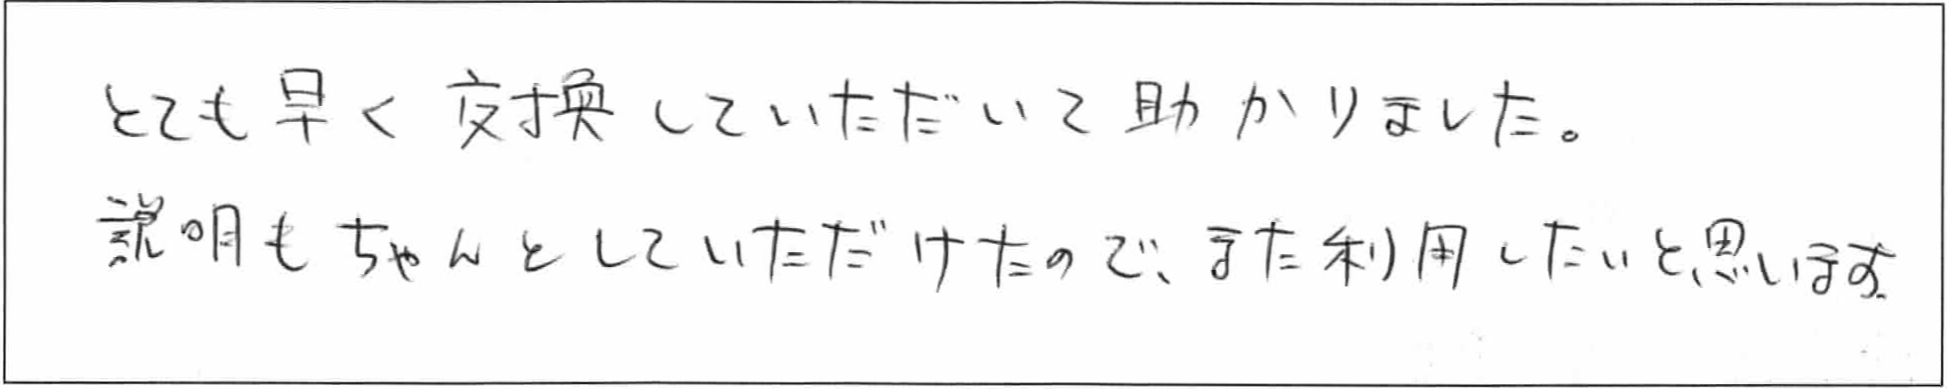 とても早く交換していただいて助かりました。
説明もちゃんとしていただけたので、また利用したいと思います